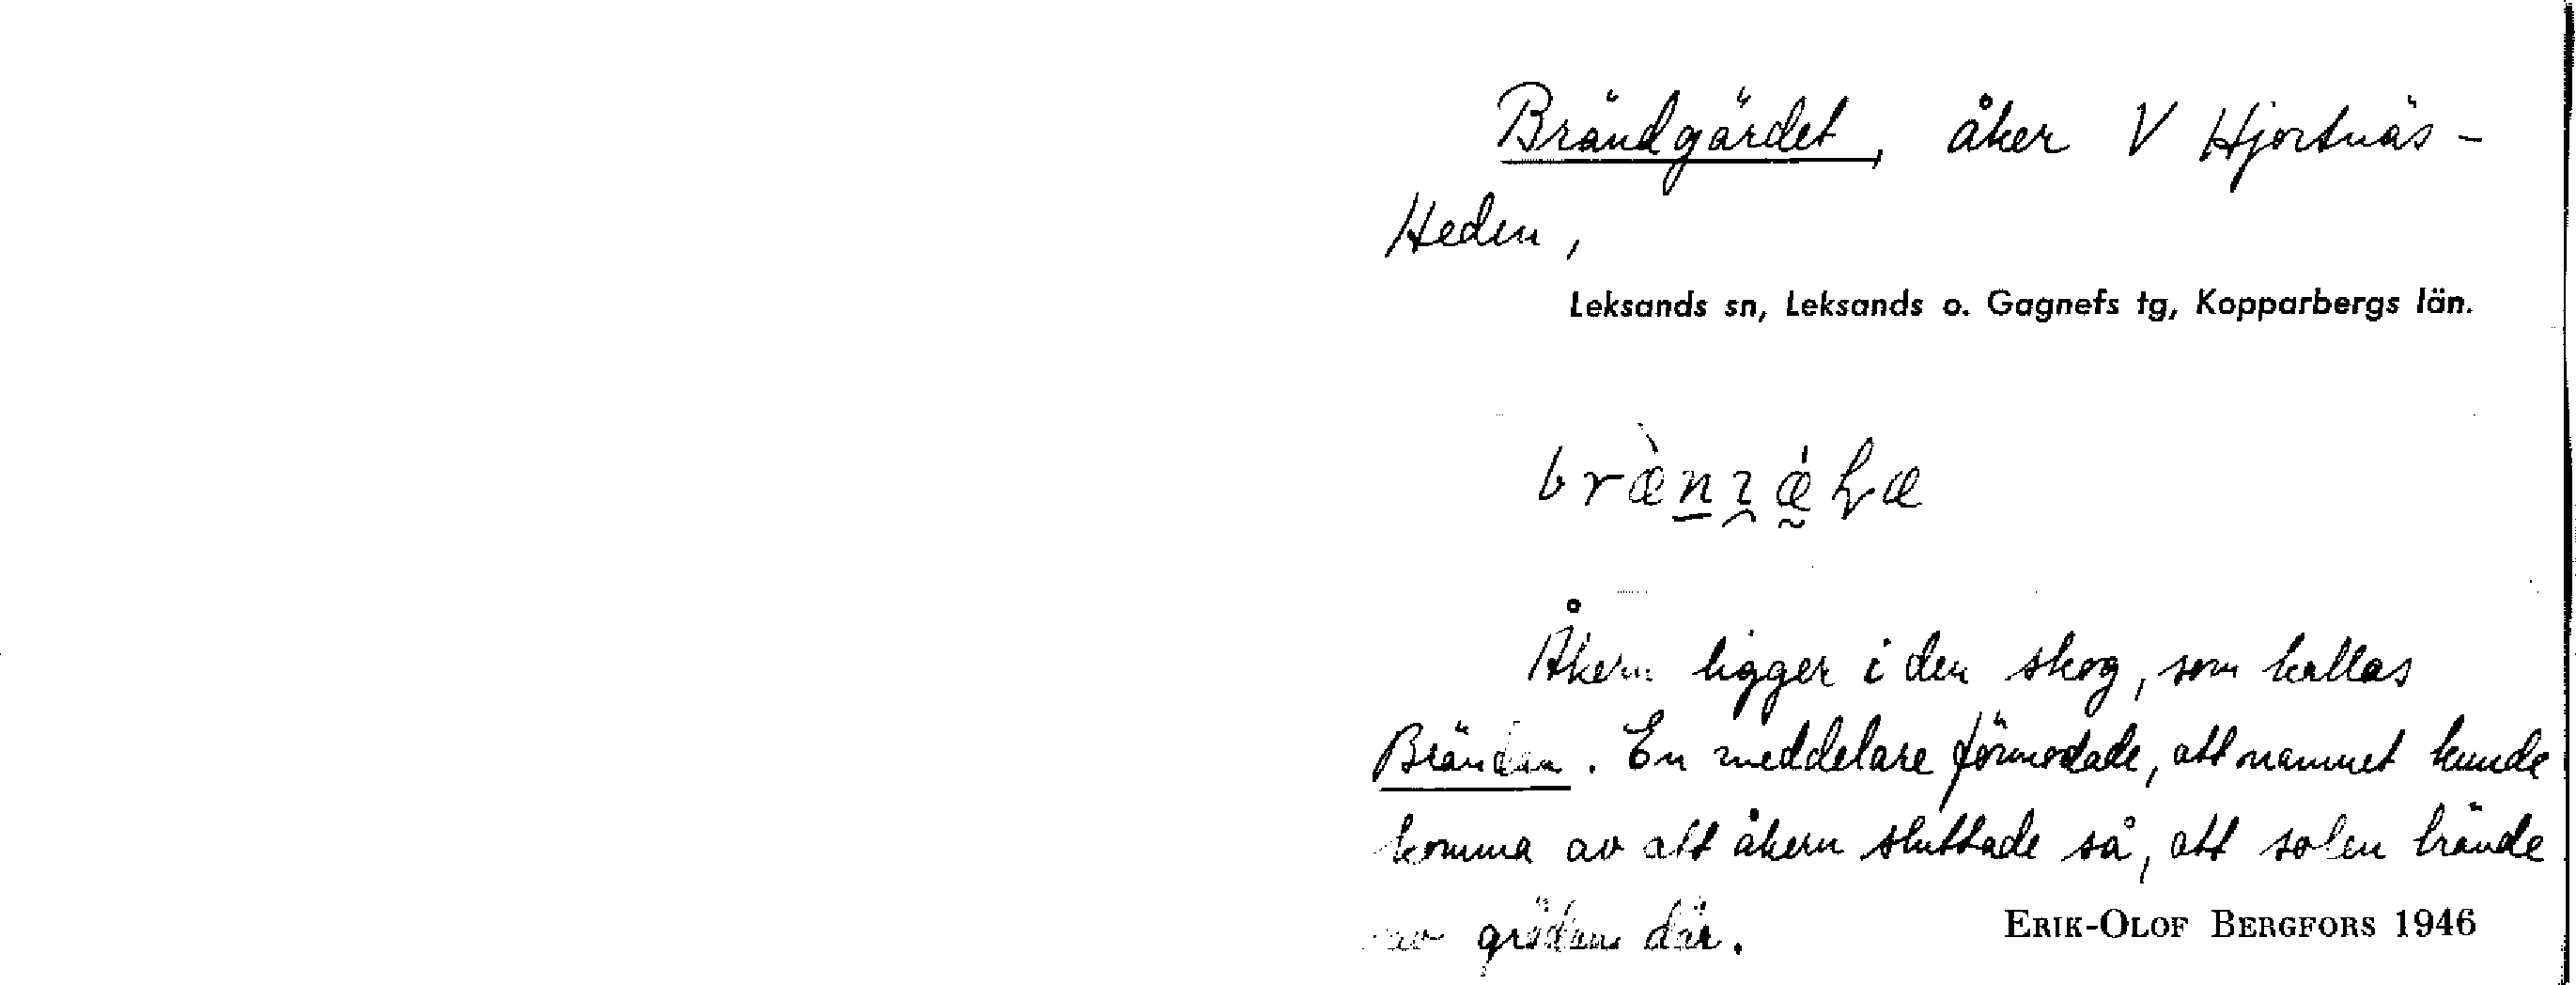 Brändgärdet, åker V Hjortnäs-
Heden,
Leksands sn, Leksands o. Gagnefs tg, Kopparbergs län.
Åkern ligger i den skog, som kallas
Brändan. En meddelare förmodade, att namnet kunde
komma av att åkern sluttade så, att solen brände
av grödan där.
ERIK-OLOF BERGFORS 1946